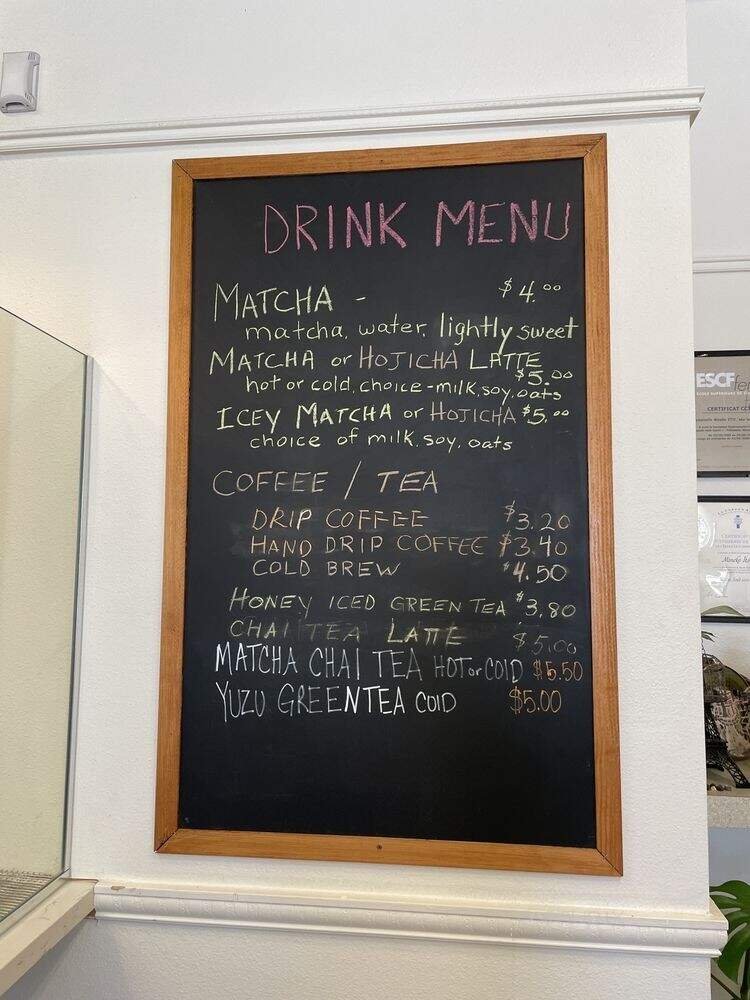 DRINK MENU
MATCHA - $4.00
matcha, water, lightly sweet
MATCHA or HOJICHA LATTE
$5.00
hot or cold, choice-milk, soy, oats
ICEY MATCHA or HOJICHA $5.00
choice of milk, soy, oats
COFFEE / TEA
DRIP COFFEE $3.20
HAND DRIP COFFEE $3.40
COLD BREW $4.50
HONEY ICED GREEN TEA $3.80
CHAI TEA LATTE $5.00
MATCHA CHAI TEA HOT or COLD $5.50
YUZU GREENTEA COLD $5.00
ESCF
CERTIFICAT